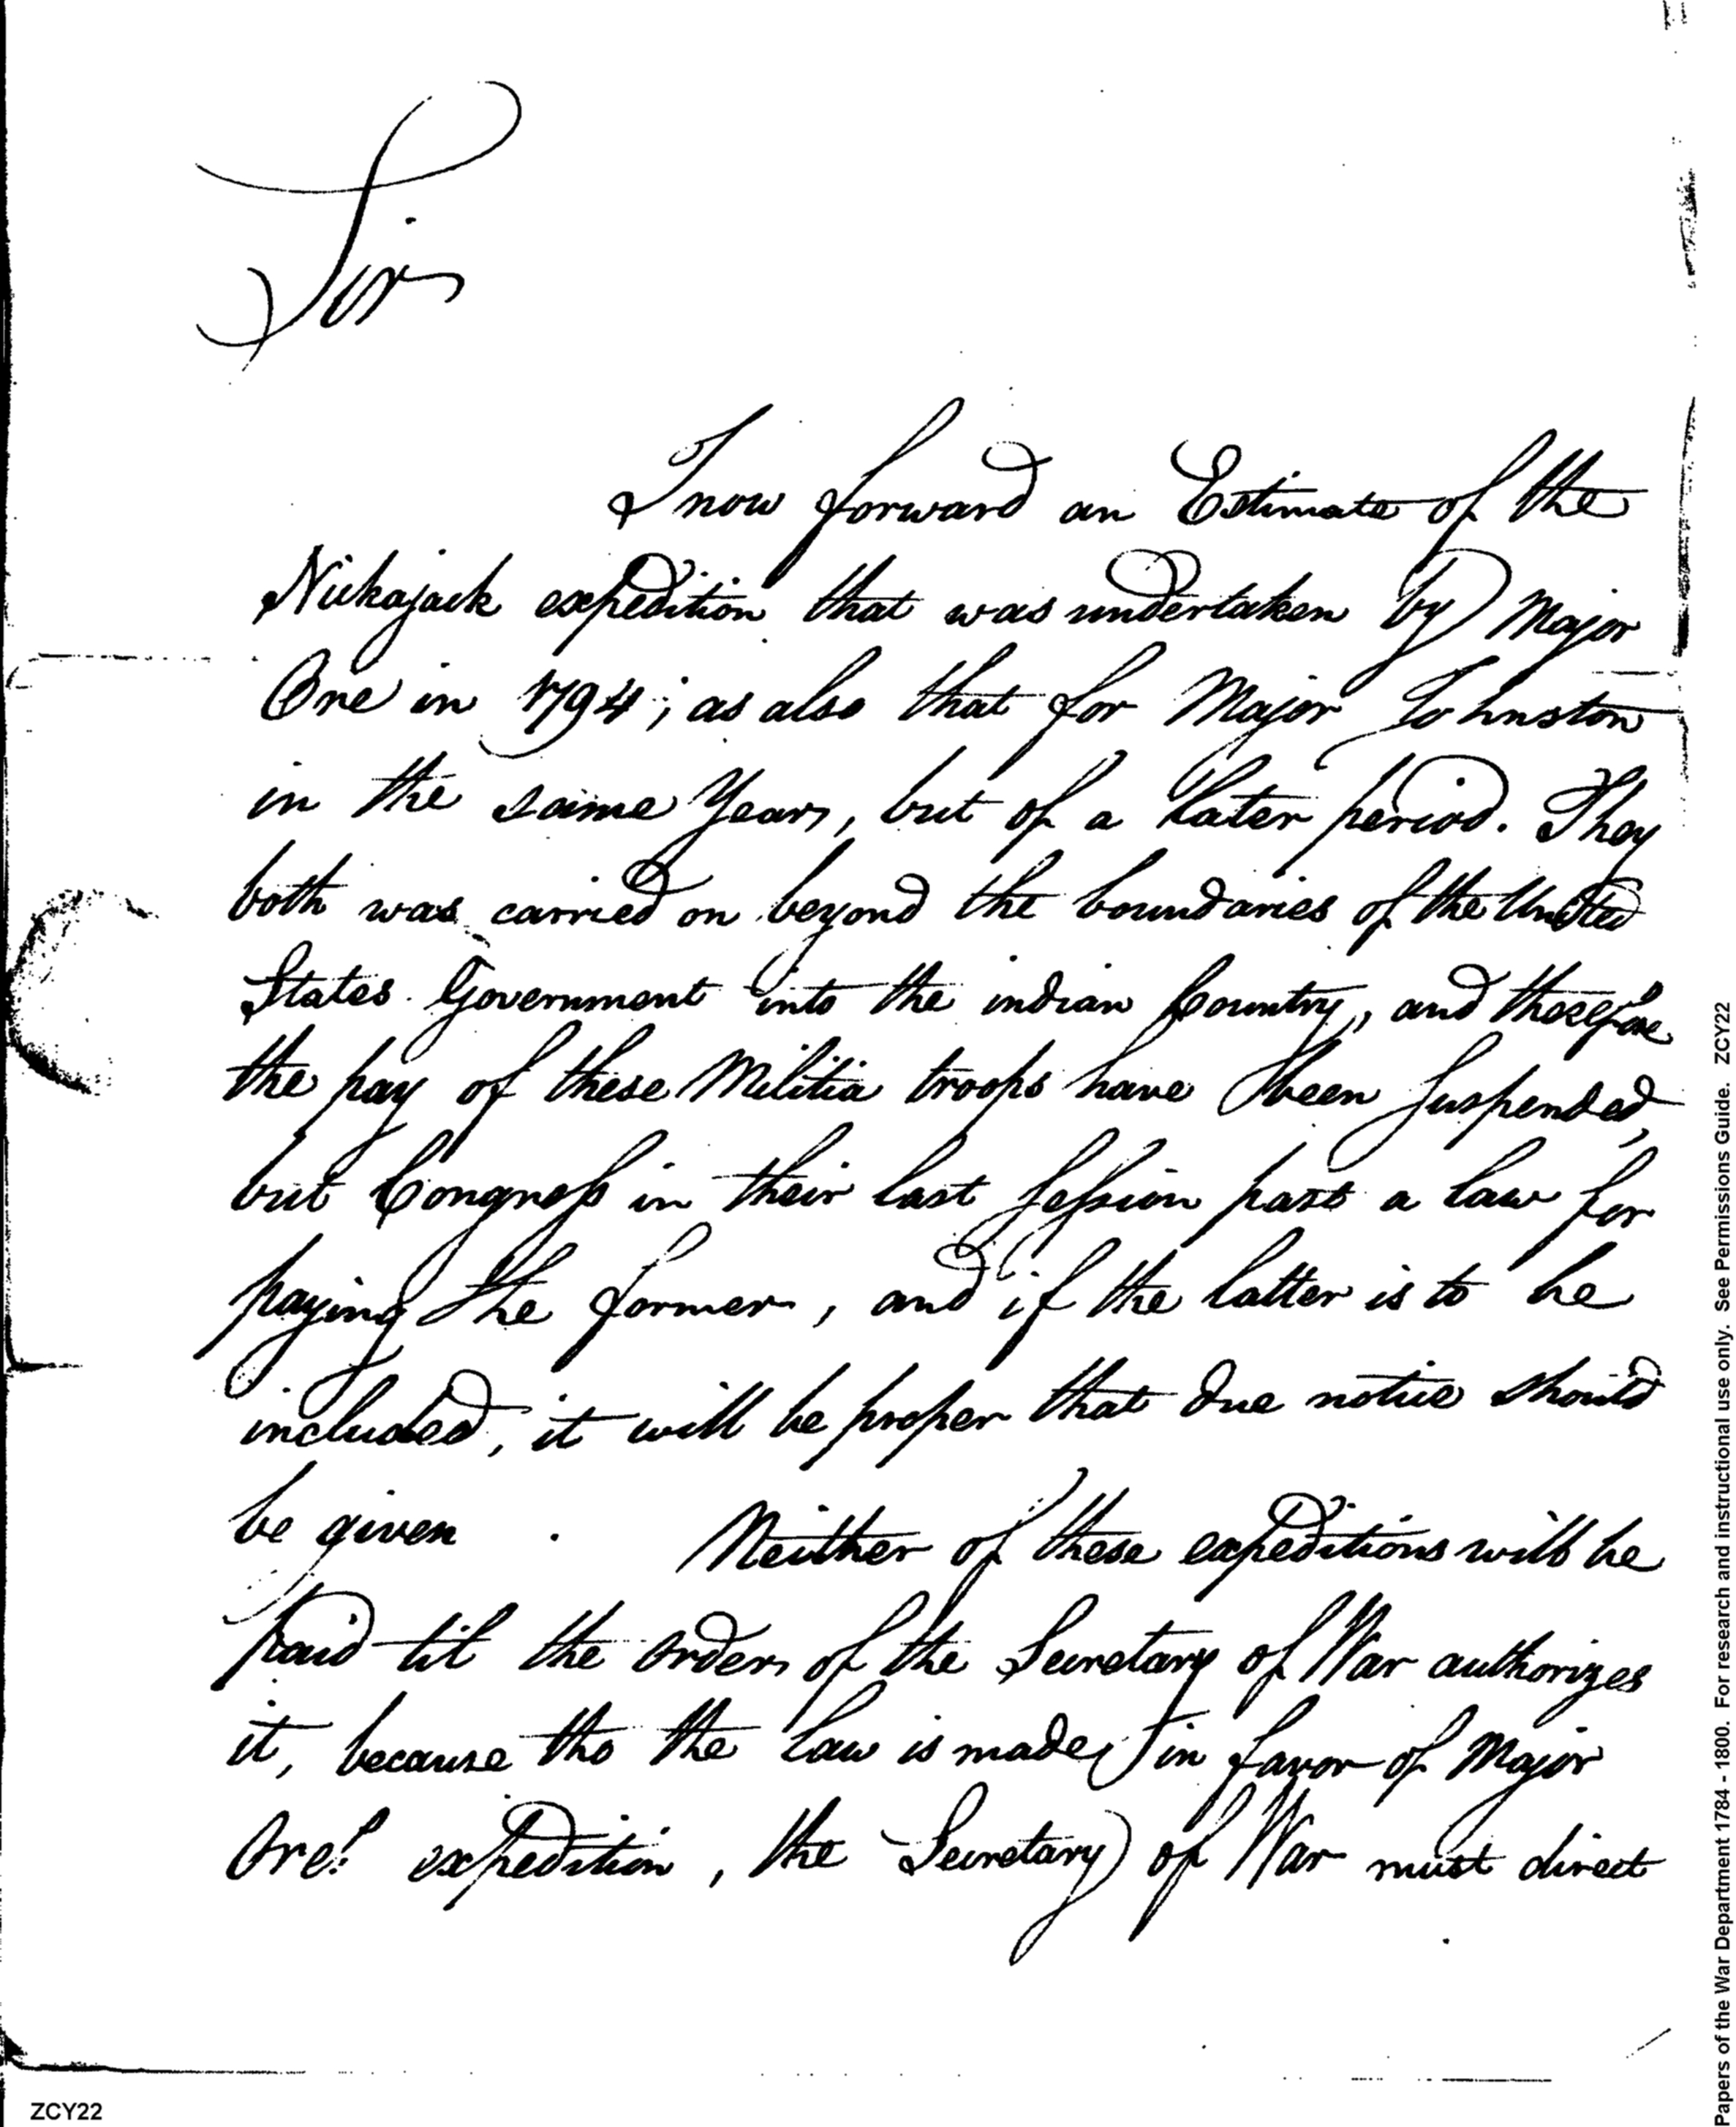 Sir
I now forward an Estimate of the
Nickajack expedition that was undertaken by Major
Ore in 1794; as also that for Major Johnston
in the same Year, but of a later period. They
both was carried on beyond the boundaries of the United
States Government into the indian Country, and therefore
the pay of these Militia troops have been suspended,
but Congress in their last session past a law for
paying the former, and if the latter is to be
included, it will be proper that due notice should
be given. Neither of these expeditions will be
paid til the orders of the Secretary of War authorizes
it, because tho the law is made in favor of Major
Ore's expedition, the Secretary of War must direct
Papers of the War Department 1784 - 1800. For research and instructional use only. See Permissions Guide. ZCY22
ZCY22